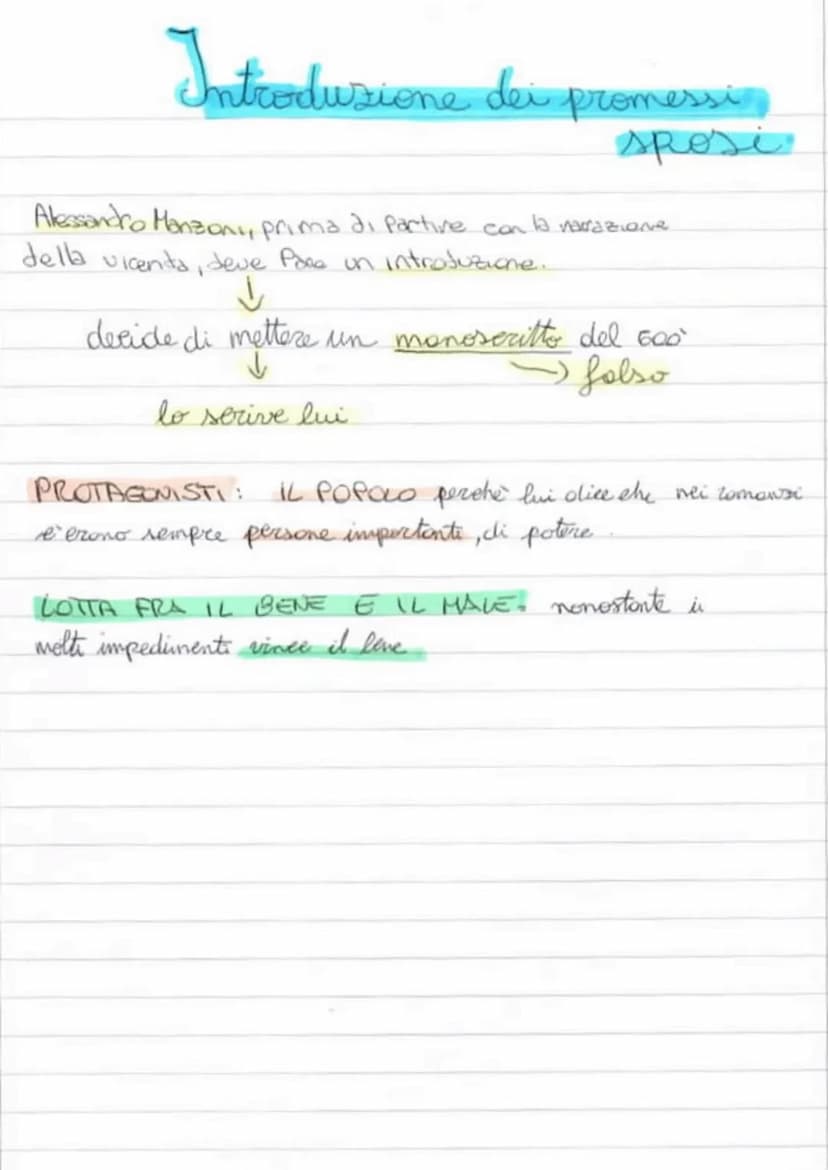 Introduzione dei promessi
sposi
Alessandro Manzoni, prima di partire con la narrazione
della vicenda, deve fare un introduzione.
↓
decide di mettere un manoscritto del 600'
↓ → falso
lo scrive lui
PROTAGONISTI: IL POPOLO perchè lui dice che nei romanzi
c'erano sempre persone importanti, di potere.
LOTTA FRA IL BENE E IL MALE: nonostante i
molti impedimenti vince il bene